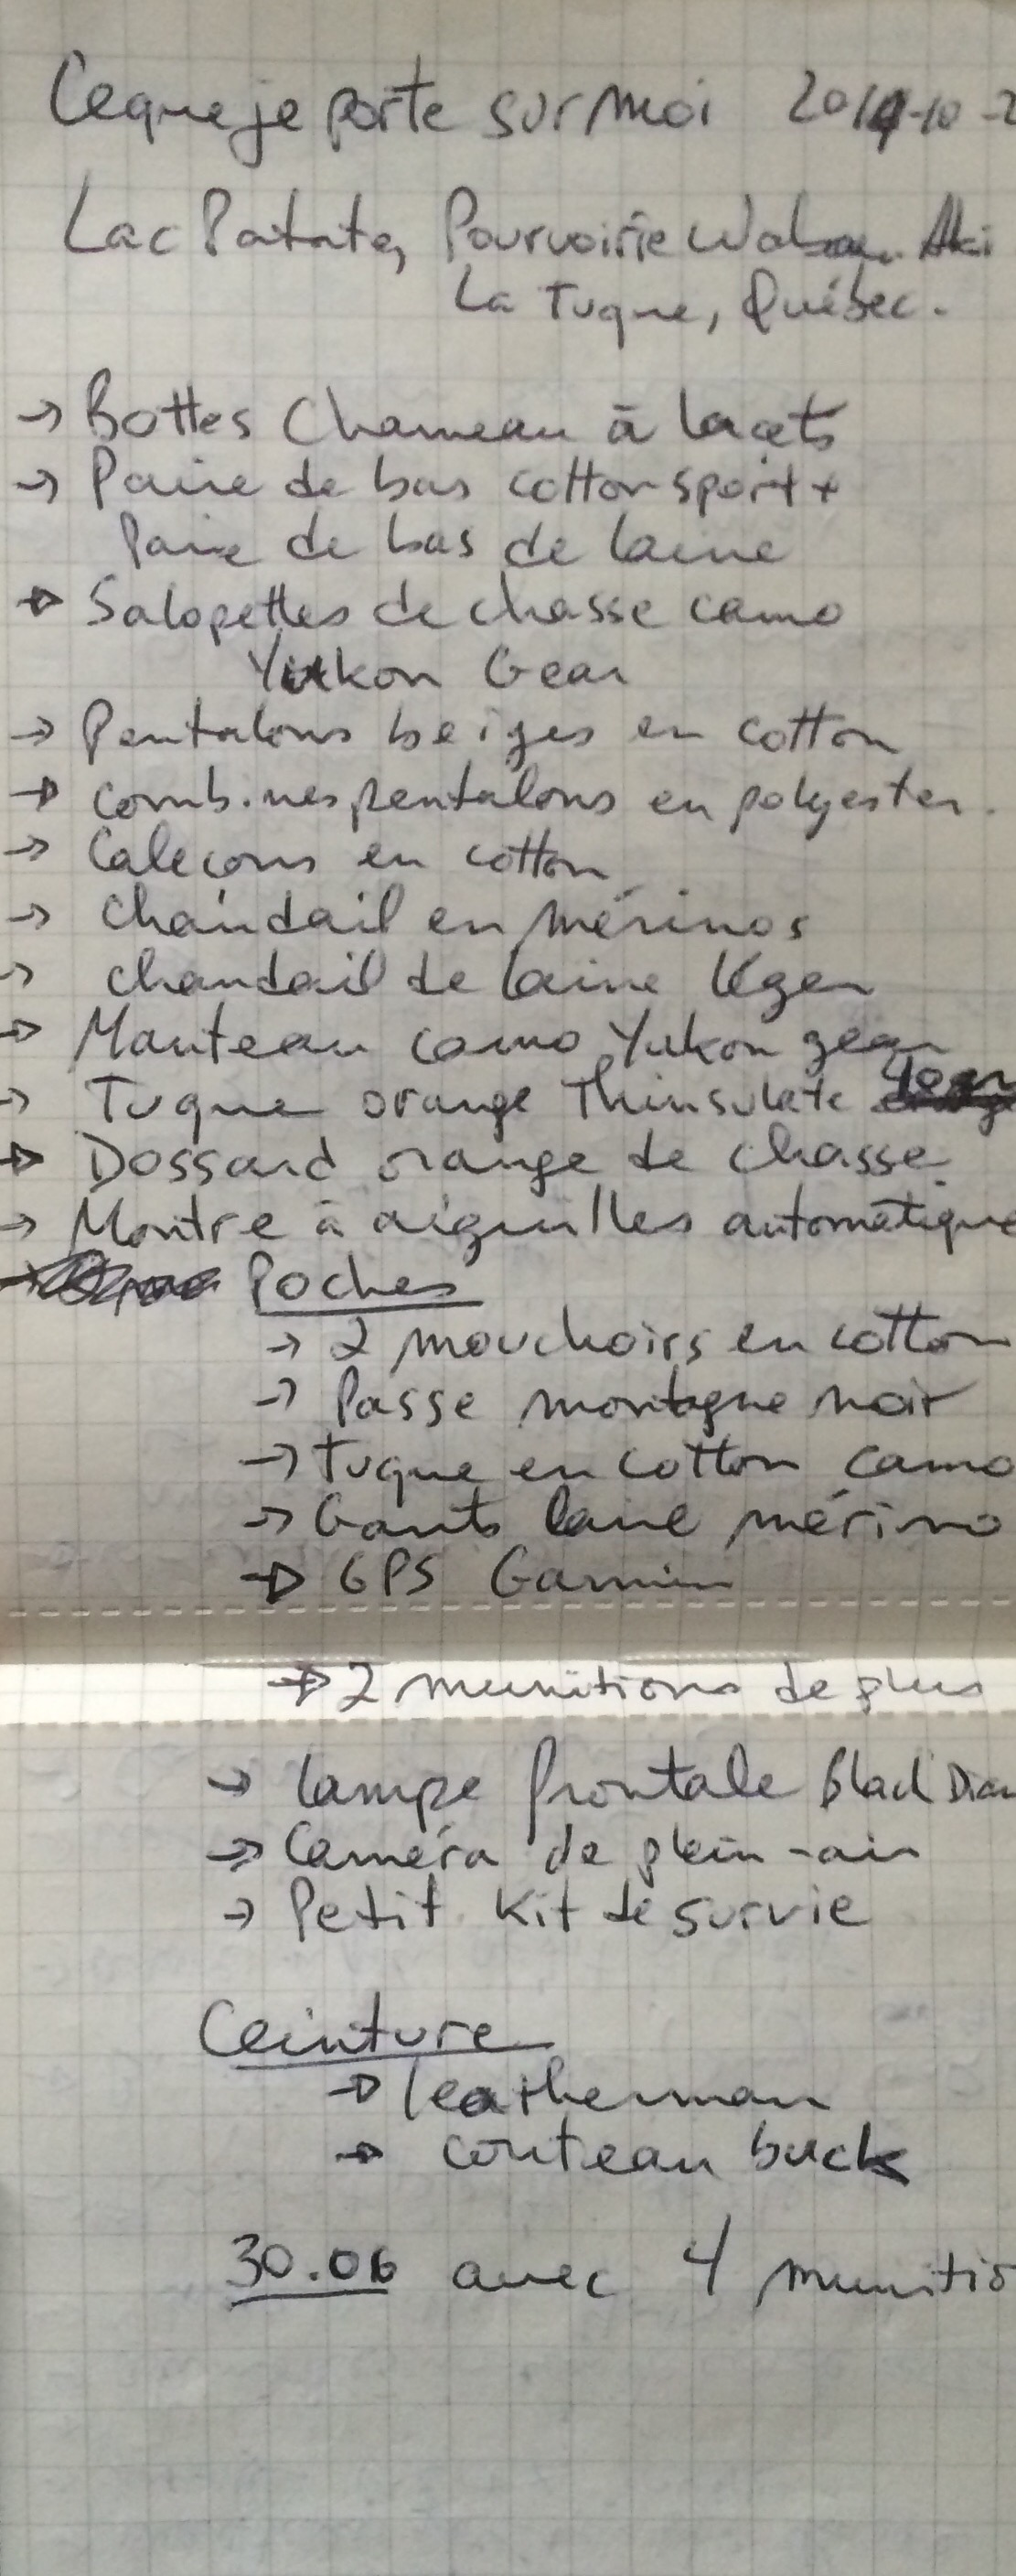 Ce que je porte sur moi 2014-10-2
Lac Patate, Pourvoirie Waban-Aki
La Tuque, Québec.
→ Bottes Chameau à lacets
→ Paire de bas cotton sport +
Paire de bas de laine
→ Salopettes de chasse camo
Yukon Gear
→ Pantalons beiges en cotton
→ combines pantalons en polyester.
→ Caleçons en cotton
→ chandail en mérinos
→ chandail de laine léger
→ Manteau camo Yukon gear
→ Tuque orange Thinsulate 40gr
→ Dossard orange de chasse.
→ Montre à aiguilles automatique
Poches
→ 2 mouchoirs en cotton
→ Passe montagne noir
→ Tuque en cotton camo
→ Gants laine mérino
→ GPS Garmin
→ 2 munitions de plus
→ Lampe frontale Black Diam
→ Caméra de plein-air
→ Petit Kit de survie
Ceinture
→ leatherman
→ couteau buck
30.06 avec 4 munitio